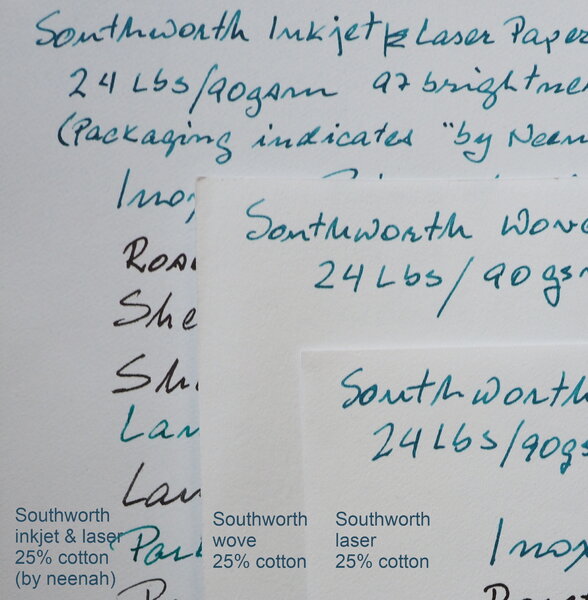 Southworth Inkjet & Laser Paper
24 Lbs/90gsm 97 brightness
(Packaging indicates "by Neen
Inox
Southworth Wove
24 Lbs/90gsm
She
Sh
Lan
Lan
Southworth
24 Lbs/90gs
Inox
Southworth
inkjet & laser
25% cotton
(by neenah)
Southworth
wove
25% cotton
Southworth
laser
25% cotton